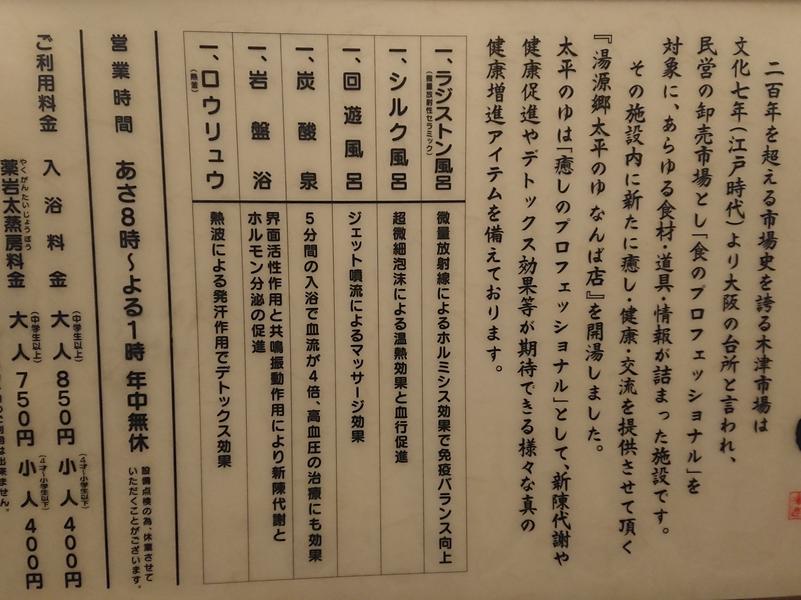 二百年を超える市場史を誇る木津市場は
文化七年(江戸時代)より大阪の台所と言われ、
民営の卸売市場とし「食のプロフェッショナル」を
対象に、あらゆる食材・道具・情報が詰まった施設です。
その施設内に新たに癒し・健康・交流を提供させて頂く
『湯源郷太平のゆ なんば店』を開湯しました。
太平のゆは「癒しのプロフェッショナル」として、新陳代謝や
健康促進やデトックス効果等が期待できる様々な真の
健康増進アイテムを備えております。
一、ラジストン風呂
(微量放射性セラミック)
微量放射線によるホルミシス効果で免疫バランス向上
一、シルク風呂
超微細泡沫による温熱効果と血行促進
一、回遊風呂
ジェット噴流によるマッサージ効果
一、炭酸泉
5分間の入浴で血流が4倍、高血圧の治療にも効果
一、岩盤浴
界面活性作用と共鳴振動作用により新陳代謝と
ホルモン分泌の促進
一、ロウリュウ
(熱波)
熱波による発汗作用でデトックス効果
営業時間 あさ8時〜よる1時 年中無休
設備点検の為、休業させて
いただくことがございます。
ご利用料金 入浴料金 大人 850円 小人 400円
(中学生以上)
(4才〜小学生以下)
薬岩太蒸房料金 大人 750円 小人 400円
やくがんたいじょうぼう
(中学生以上)
(4才〜小学生以下)
出来ません。